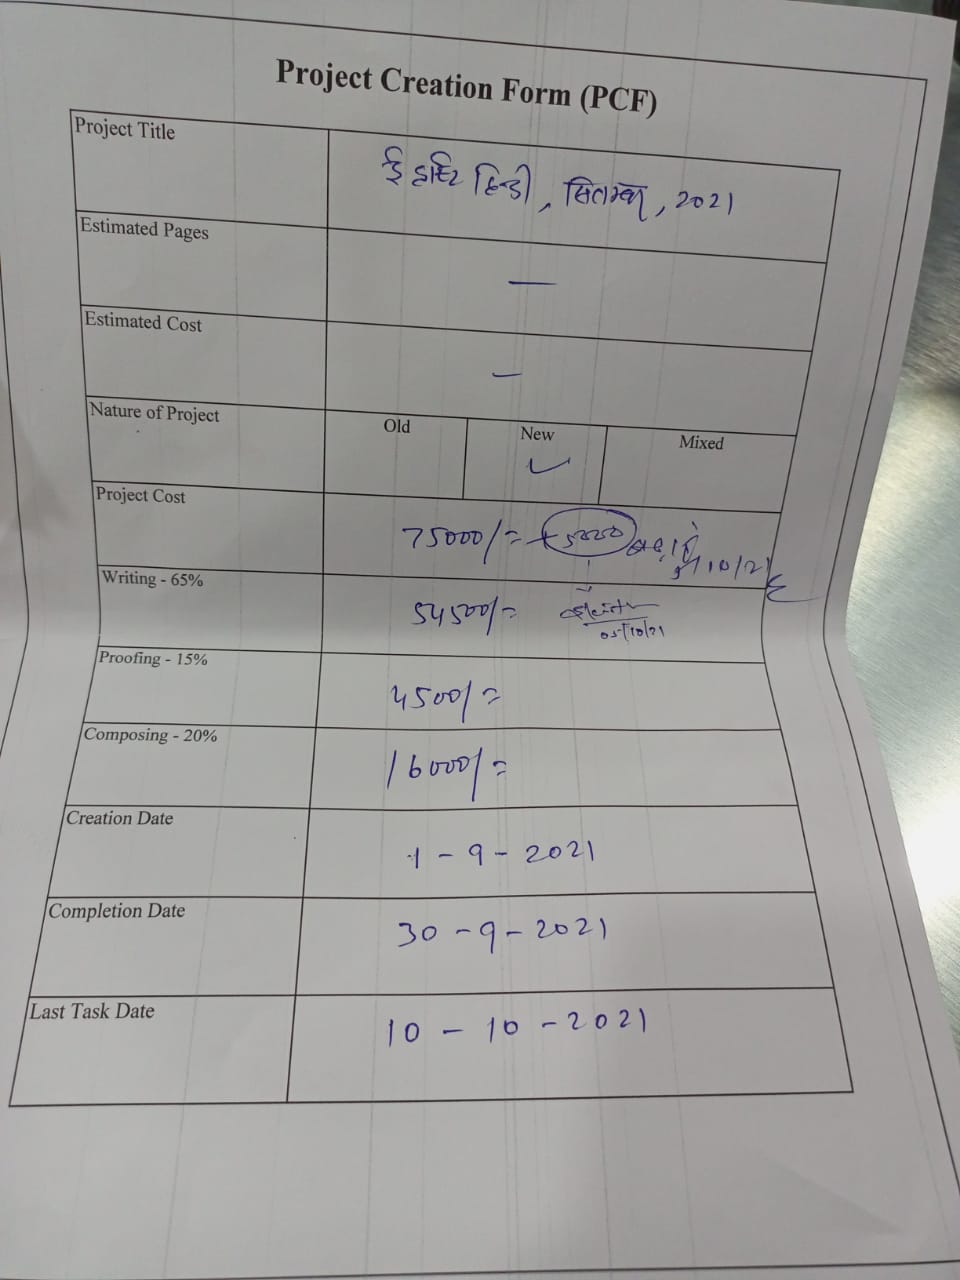 Project Creation Form (PCF)
Project Title
हिन्दी, सितम्बर, 2021
Estimated Pages —
Estimated Cost —
Nature of Project Old New ✓ Mixed
Project Cost 75000/= + 5000
10/21
Writing - 65% 54500/=
05/10/21
Proofing - 15% 4500/=
Composing - 20% 16000/=
Creation Date 1-9-2021
Completion Date 30-9-2021
Last Task Date 10-10-2021